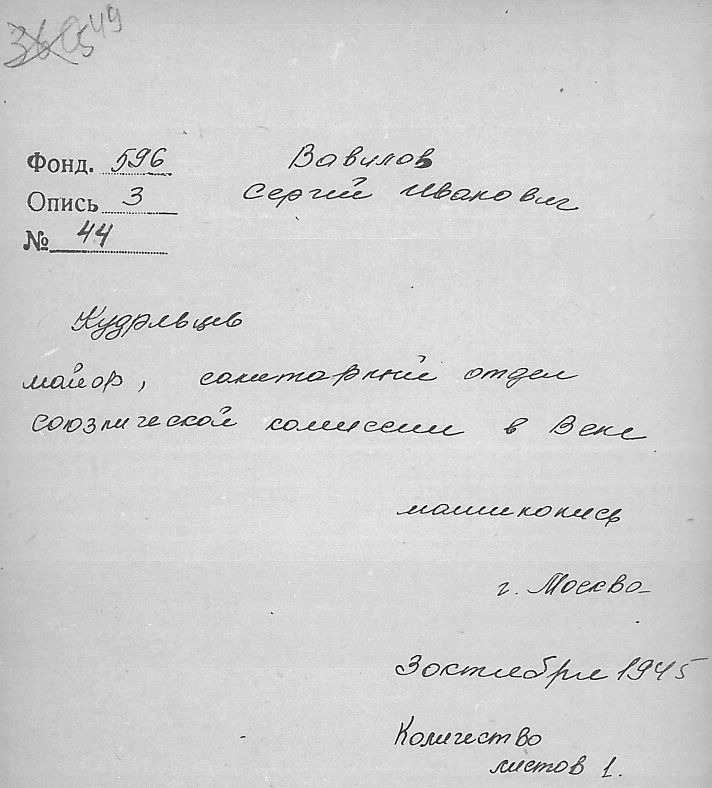 549
Фонд. 596
Опись 3
№ 44
Вавилов
Сергей Иванович
Кудрявцев
майор, санитарный отдел
союзнической комиссии в Вене
машинопись
г. Москва
3 октября 1945
Количество
листов 1.